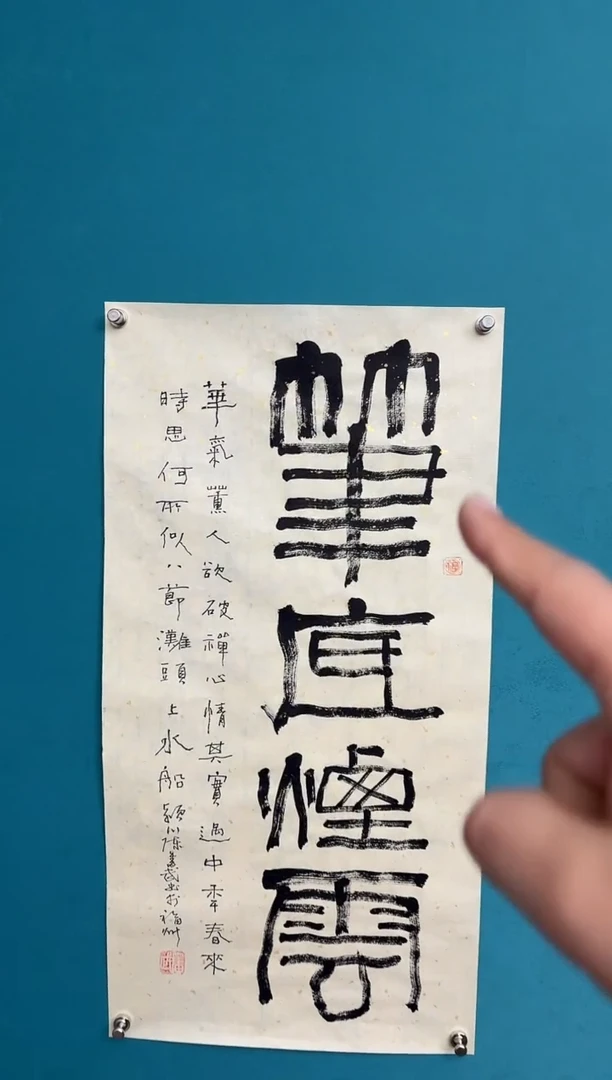 筆宜煙雲
華氣薰人欲破禪心情其實過中年春來
時思何所似八節灘頭上水船